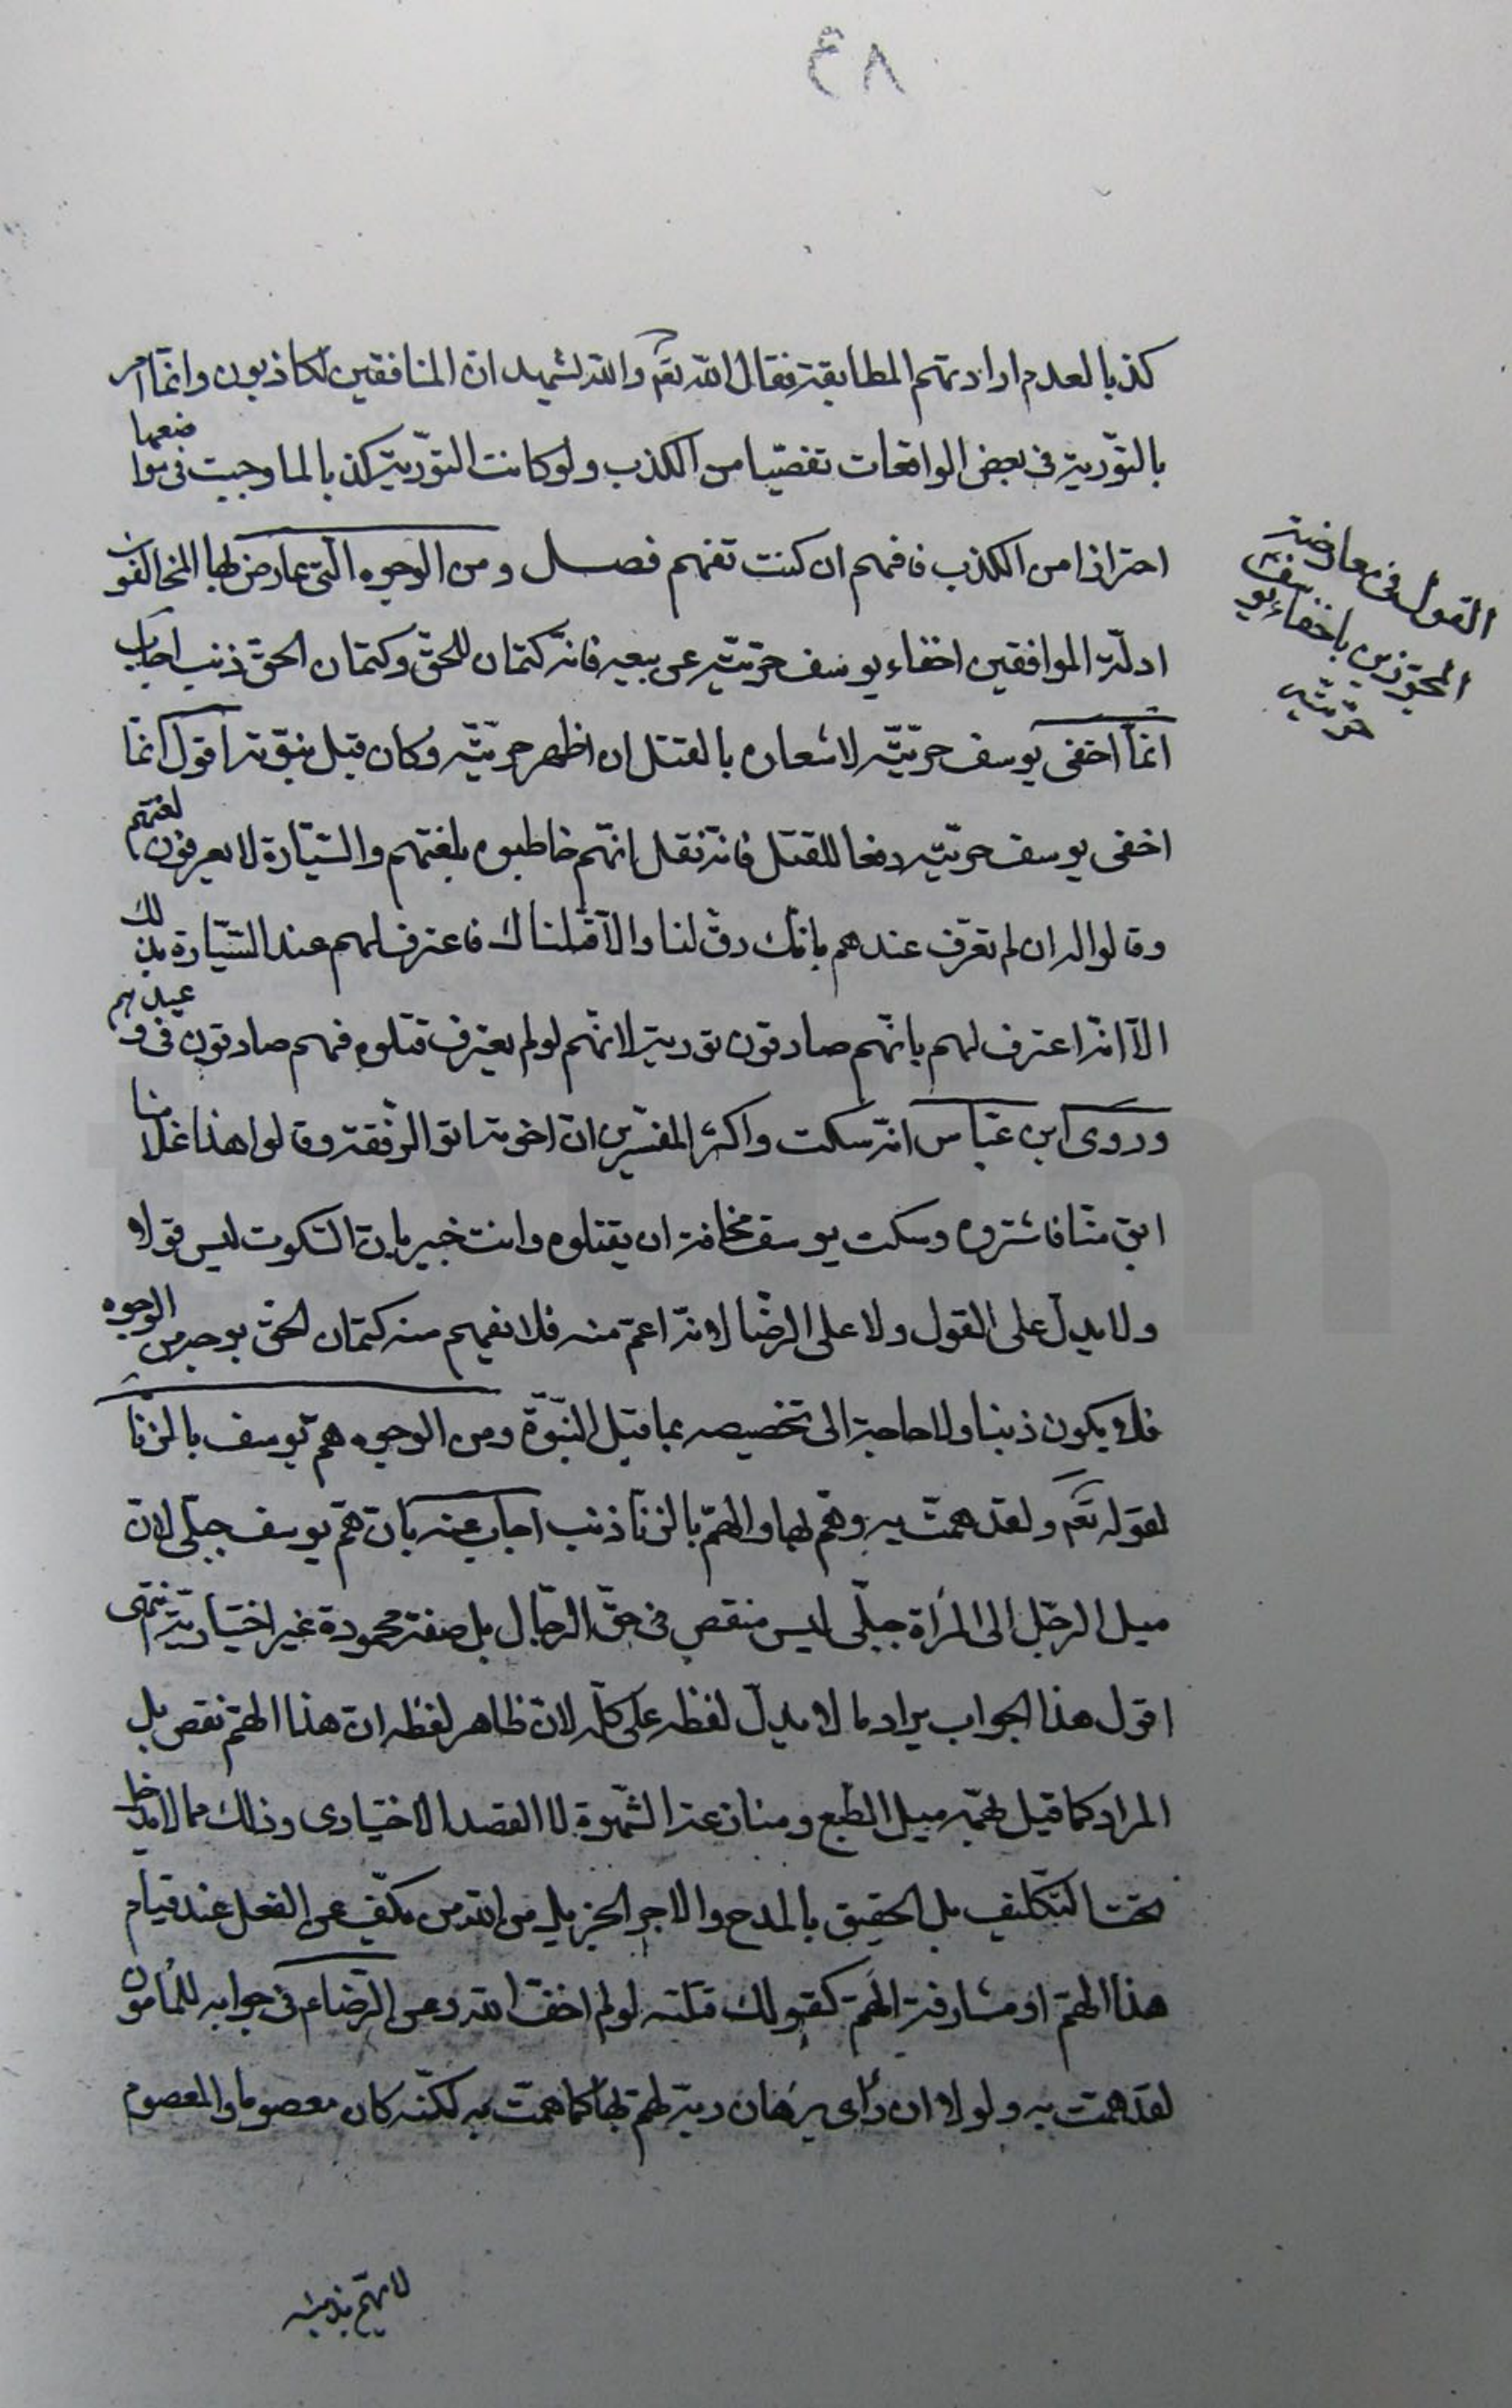 ٤٨
كذبا لعدم ارادتهم المطابقة فقال الله تعم والله يشهد ان المنافقين لكاذبون وانما امر
بالتورية فى بعض الواقعات تفصيا من الكذب ولو كانت التورية كذبا لما وجبت فى مواضعها
احترازا من الكذب فافهم ان كنت تفهم فصل ومن الوجوه التى عارض بها المخالفون
ادلة الموافقين اخفاء يوسف حريته عن بيعه فانه كتمان للحق وكتمان الحق ذنب اجاب
انما اخفى يوسف حريته لاشعاره بالقتل ان اظهر حريته وكان قبل نبوته اقول انما
اخفى يوسف حريته دفعا للقتل فانه نقل انهم خاطبوه بلغتهم والسيارة لا يعرفون لغتهم
وقالوا له ان لم تعرف عندهم بانك رق لنا والا قتلناك فاعترف لهم عند السيارة بذلك
الا انه اعترف لهم بانهم صادقون تورية لانهم لو لم يعترف قتلوه فهم صادقون فى وعيدهم
وروى ابن عباس انه سكت واكثر المفسرين ان اخوته اتوا الرفقة وقالوا هذا غلامنا
ابق منا فاشتروه وسكت يوسف مخافة ان يقتلوه وانت خبير بان السكوت ليس قولا
ولا يدل على القول ولا على الرضا لانه اعم منه فلا يفهم منه كتمان الحق بوجه من الوجوه
فلا يكون ذنبا ولا حاجة الى تخصيصه بما قبل النبوة ومن الوجوه هم يوسف بالزنا
لقوله تعم ولقد همت به وهم بها والهم بالزنا ذنب اجاب عنه بان هم يوسف جبلى لان
ميل الرجل الى المرأة جبلى ليس منقص فى حق الرجال بل صفة محمودة غير اختيارية انتهى
اقول هذا الجواب يراد ما لا يدل لفظه على كله لان ظاهر لفظه ان هذا الهم نقص بل
المراد كما قيل بهمه ميل الطبع ومنازعة الشهوة لا القصد الاختيارى وذلك مما لا يدخل
تحت التكليف بل الحقيق بالمدح والاجر الجزيل من الله من يكف عن الفعل عند قيام
هذا الهم او مشارفة الهم كقولك قتلته لو لم اخف الله وعن الرضا ع فى جوابه للمأمون
لقد همت به ولولا ان رأى برهان ربه لهم بها كما همت به لكنه كان معصوما والمعصوم
لا يهم بذنب
القول فى معارضة
المجوزين باخفاء يوسف
حريته